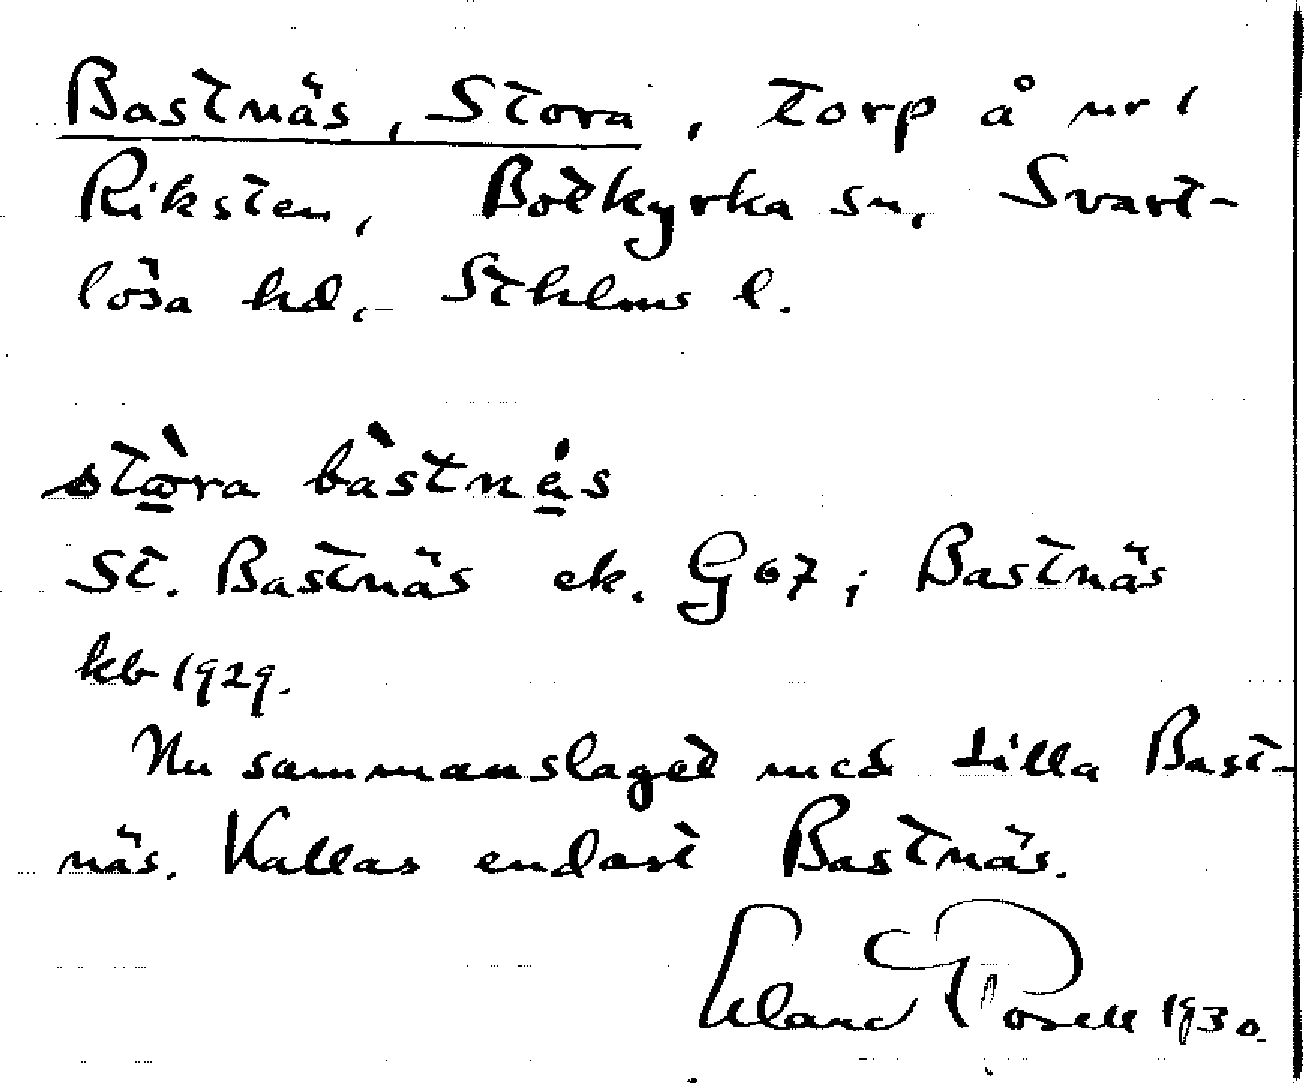 Bastnäs, Stora, torp å nr 1
Riksten, Botkyrka sn, Svart-
lösa hd, Sthlms l.
stò̲ra bàstná̲s
St. Bastnäs ek. G 67; Bastnäs
kb 1929.
Nu sammanslaget med Lilla Bast-
näs. Kallas endast Bastnäs.
Erland Rosell 1930.